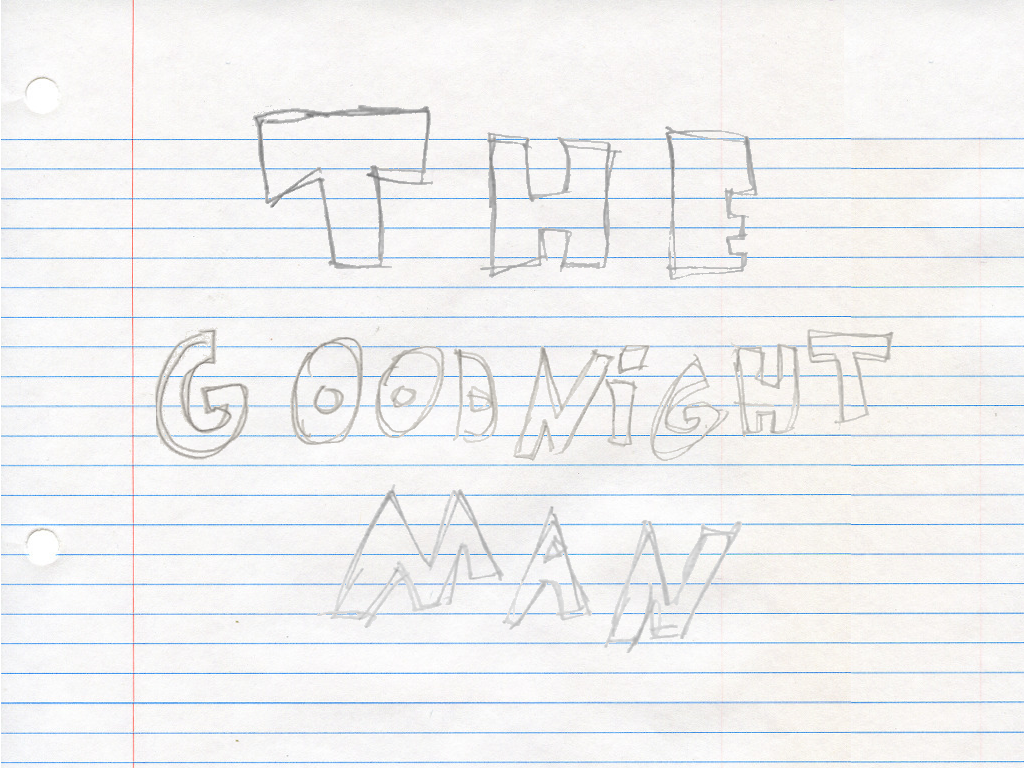 THE
GOODNiGHT
MAN